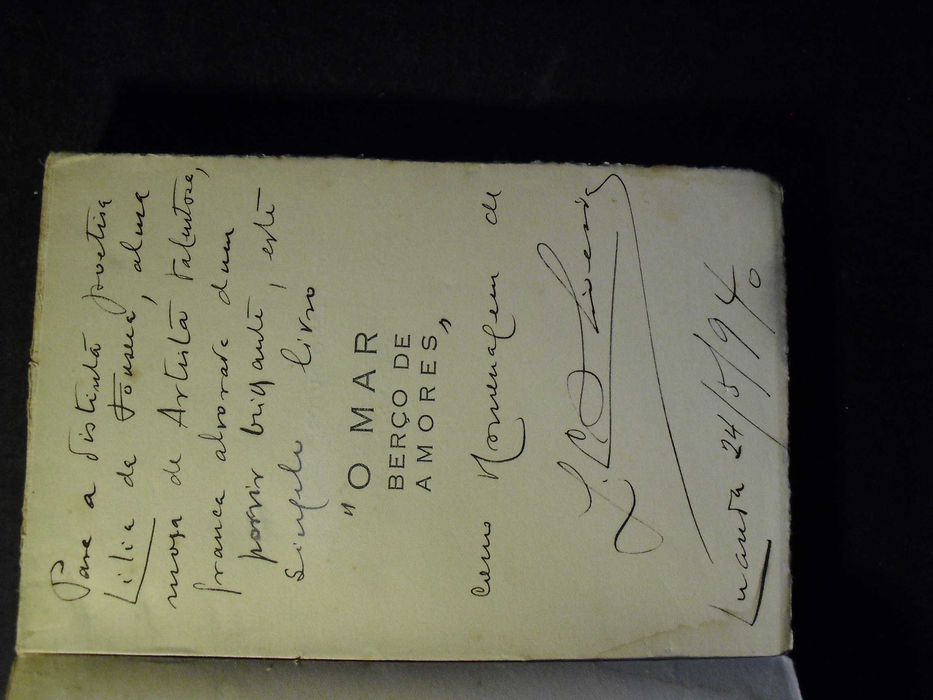 Para a distinta poetisa
Lilia da Fonseca, alma
moça de Artista talentosa,
franca alvorada dum
porvir brilhante, este
singelo livro
"O MAR
BERÇO DE
AMORES"
como homenagem de
Luanda 24/5/940